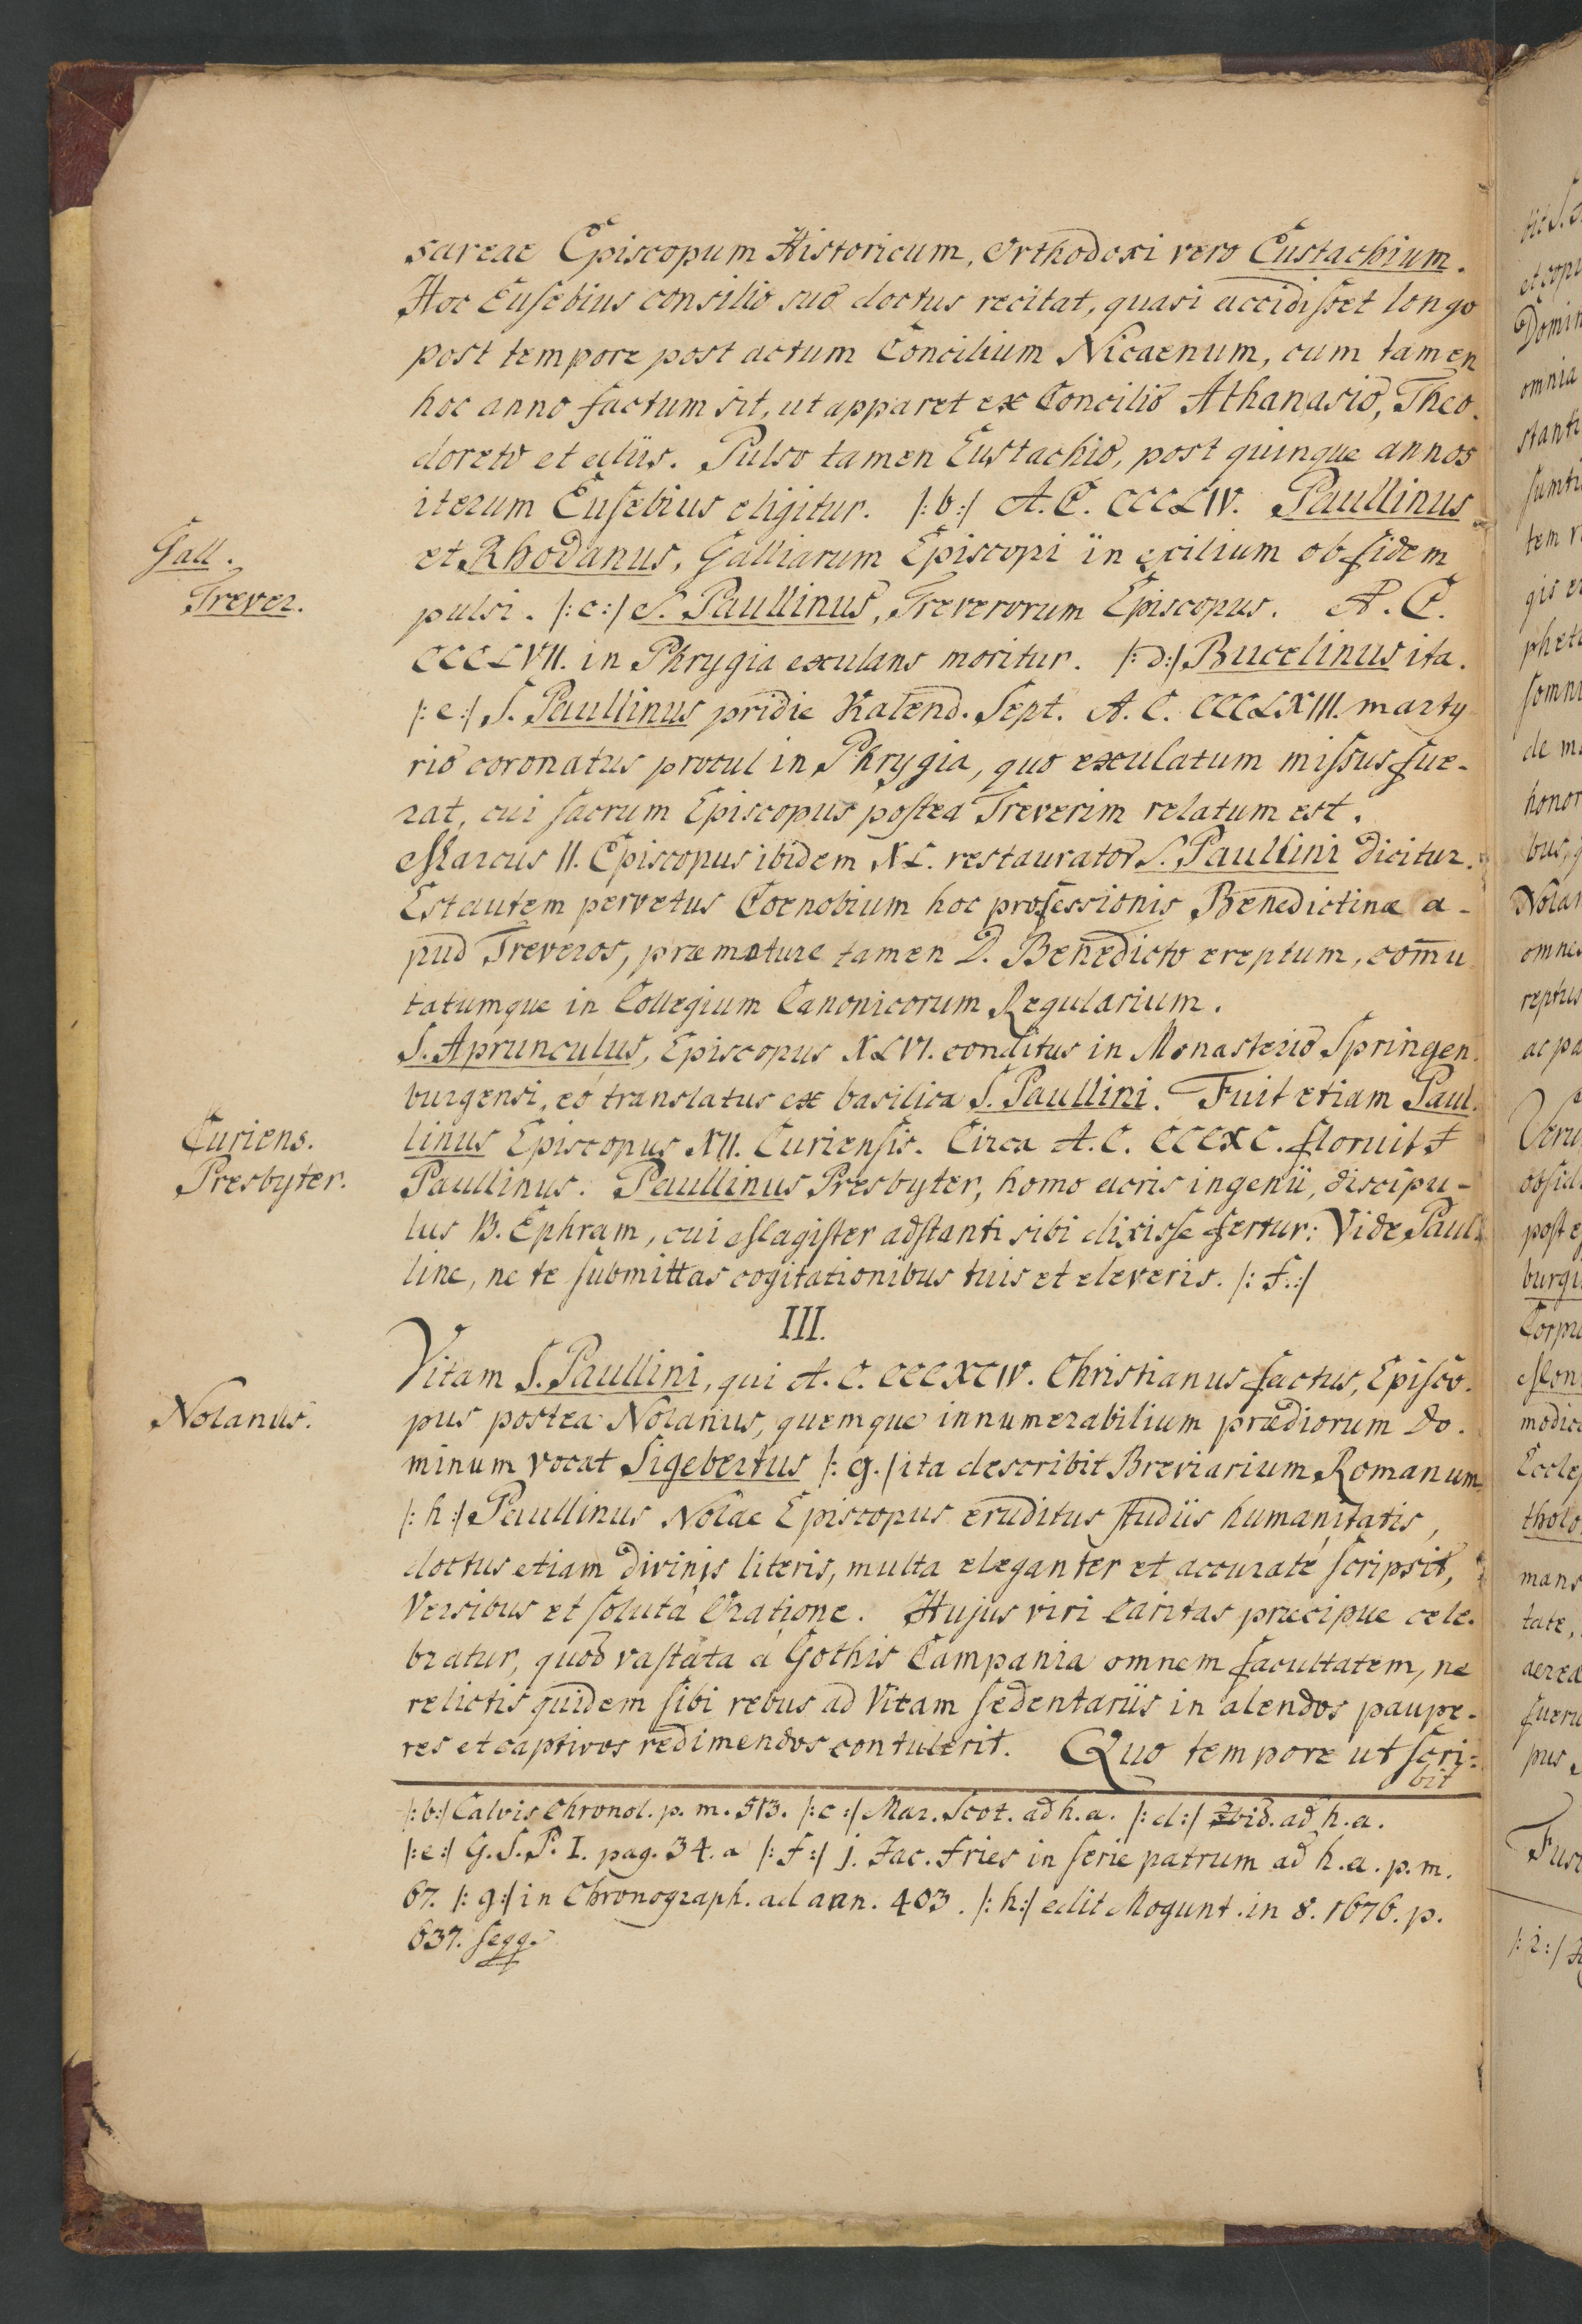 sareae Episcopum Historicum, Orthodoxi vero Eustachium.
Hoc Eusebius consilio suo doctus recitat, quasi accidisset longo
post tempore post actum Concilium Nicaenum, cum tamen
hoc anno factum sit, ut apparet ex Concilio Athanasio, Theo.
doreto et aliis. Pulso tamen Eustachio, post quinque annos
iterum Eusebius eligitur. |:b:| A.C. CCCLIV. Paullinus
Gall.
et Rhodanus, Galliarum Episcopi in exilium ob fidem
Trever.
pulsi. |:c:| S. Paullinus, Treverorum Episcopus. A.C.
CCCLVII. in Phrygia exulans moritur. |:d:| Bucelinus ita.
|:e:| S. Paullinus pridie Kalend. Sept. A.C. CCCLXIII. marty
rio coronatus procul in Phrygia, quo exulatum missus fue-
rat, cui sacrum Episcopus postea Treverim relatum est.
Marcus II. Episcopus ibidem XL. restaurator S. Paullini dicitur.
Est autem pervetus Coenobium hoc professionis Benedictinæ a-
pud Treveros, præmature tamen D. Benedicto ereptum, com̄u
tatumque in Collegium Canonicorum Regularium.
S. Aprunculus, Episcopus XLVI. conditus in Monasterio Springen.
burgensi, eó translatus ex basilica S. Paullini. Fuit etiam Paul.
Curiens.
linus Episcopus XII. Curiensis. Circa A.C. CCCXC. floruit
Presbyter.
Paullinus. Paullinus Presbyter, homo acris ingenii, discipu-
lus B. Ephram, cui Magister adstanti sibi dixisse fertur: Vide, Paul.
line, ne te submittas cogitationibus tuis et eleveris. |:f.:|
III.
Vitam S. Paullini, qui A.C. CCCXCIV. Christianus factus, Episco.
Nolanus.
pus postea Nolanus, quemque innumerabilium prædiorum do.
minum vocat Sigebertus |:g.| ita describit Breviarium Romanum
|:h:| Paullinus Nolae Episcopus eruditus studiis humanitatis,
doctus etiam divinis literis, multa eleganter et accuraté scripsit,
Versibus et solutá Oratione. Hujus viri Caritas præcipue cele.
bratur, quod vastata á Gothis Campania omnem facultatem, ne
relictis quidem sibi rebus ad Vitam sedentariis in alendos paupe-
res et captivos redimendos contulerit. Quo tempore ut scri:
bit
|:b:| Calvis Chronol. p. m. 513. |:c:| Mar. Scot. ad h.a. |:d:| Ibid. ad h.a.
|:e:| G.S.P.I. pag. 34. a |:f:| j. Jac. Fries in serie patrum ad h.a. p.m.
67. |:g:| in Chronograph. ad ann. 403. |:h:| edit Mogunt. in 8. 1676. p.
637. seqq.